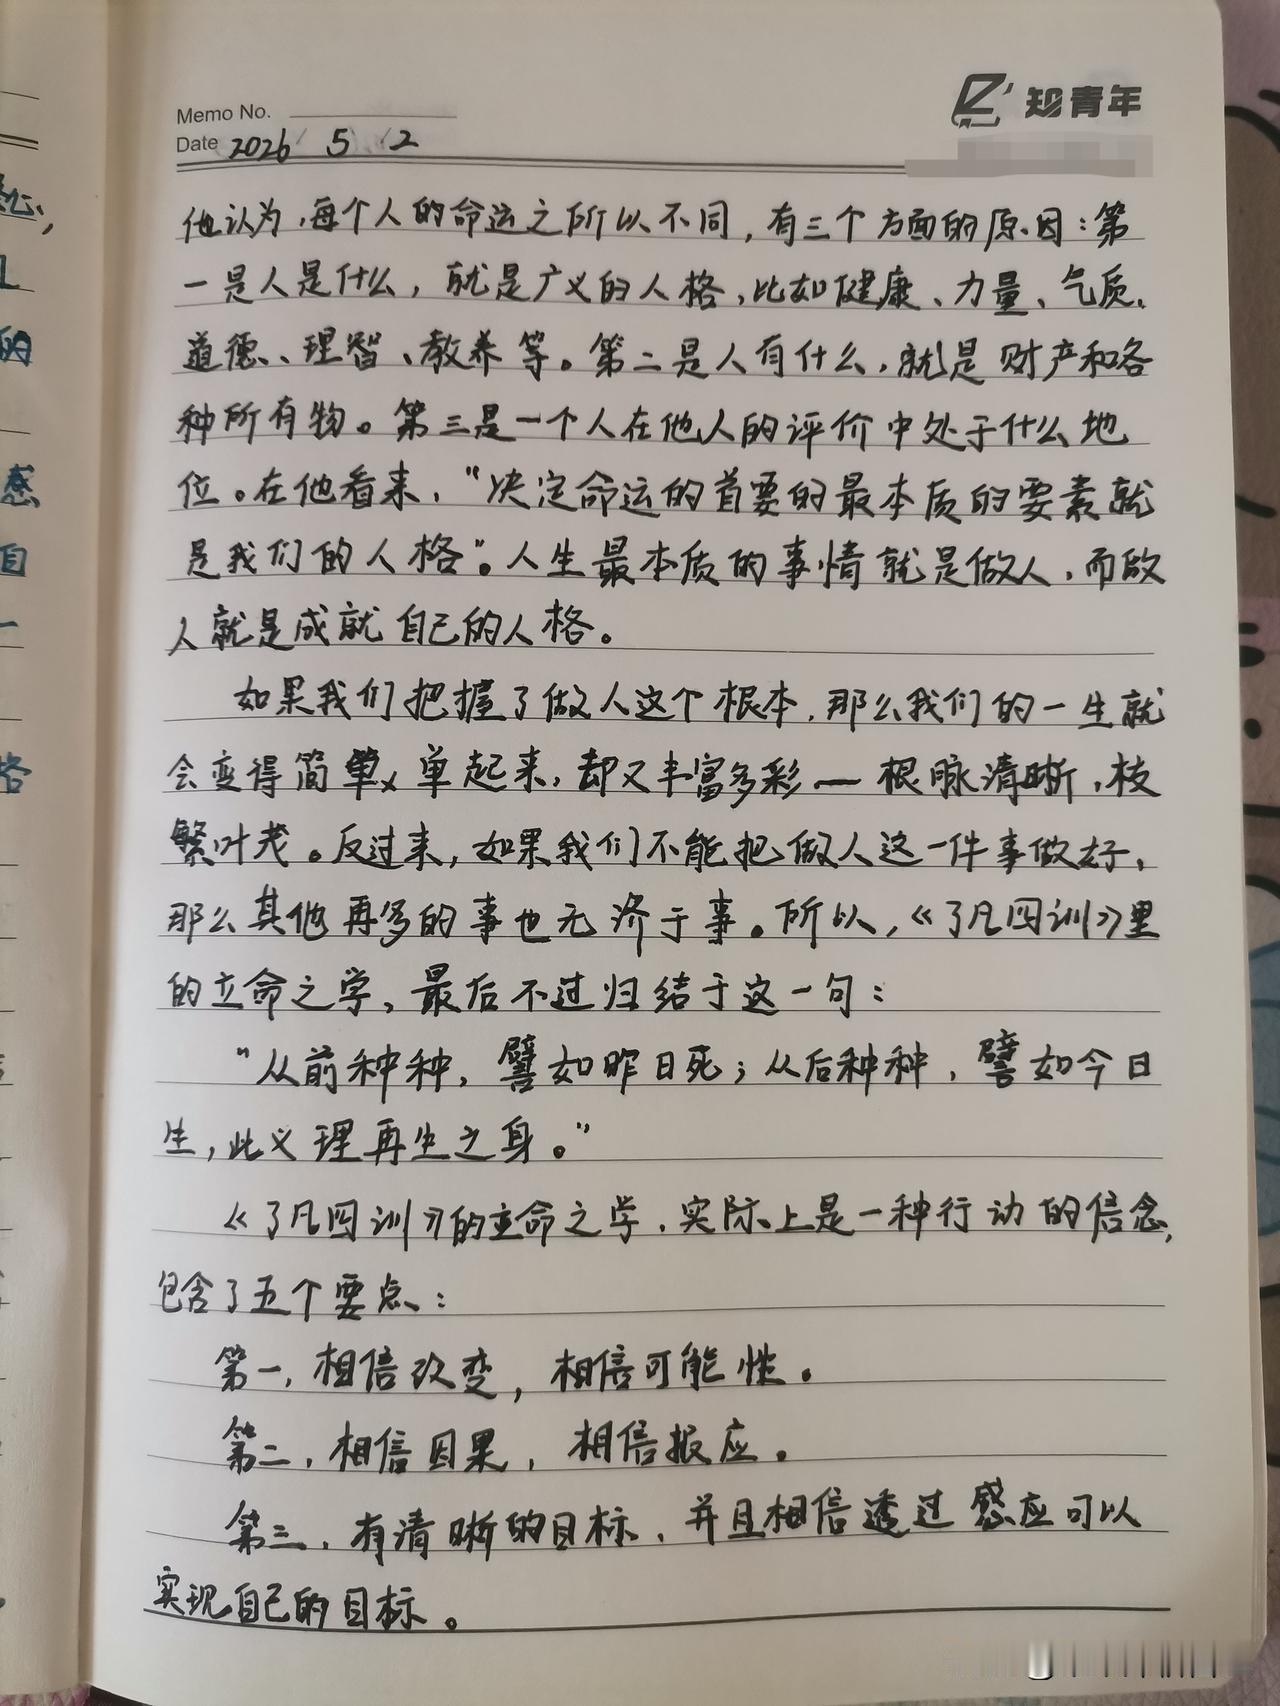 知青年
Memo No.
Date 2026 / 5 / 2
他认为，每个人的命运之所以不同，有三个方面的原因：第
一是人是什么，就是广义的人格，比如健康、力量、气质、
道德、理智、教养等。第二是人有什么，就是财产和各
种所有物。第三是一个人在他人的评价中处于什么地
位。在他看来，“决定命运的首要的最本质的要素就
是我们的人格”。人生最本质的事情就是做人，而做
人就是成就自己的人格。
如果我们把握了做人这个根本，那么我们的一生就
会变得简单起来，却又丰富多彩—根脉清晰，枝
繁叶茂。反过来，如果我们不能把做人这一件事做好，
那么其他再多的事也无济于事。所以，《了凡四训》里
的立命之学，最后不过归结于这一句：
“从前种种，譬如昨日死；从后种种，譬如今日
生，此义理再生之身。”
《了凡四训》的立命之学，实际上是一种行动的信念，
包含了五个要点：
第一，相信改变，相信可能性。
第二，相信因果，相信报应。
第三，有清晰的目标，并且相信透过感应可以
实现自己的目标。